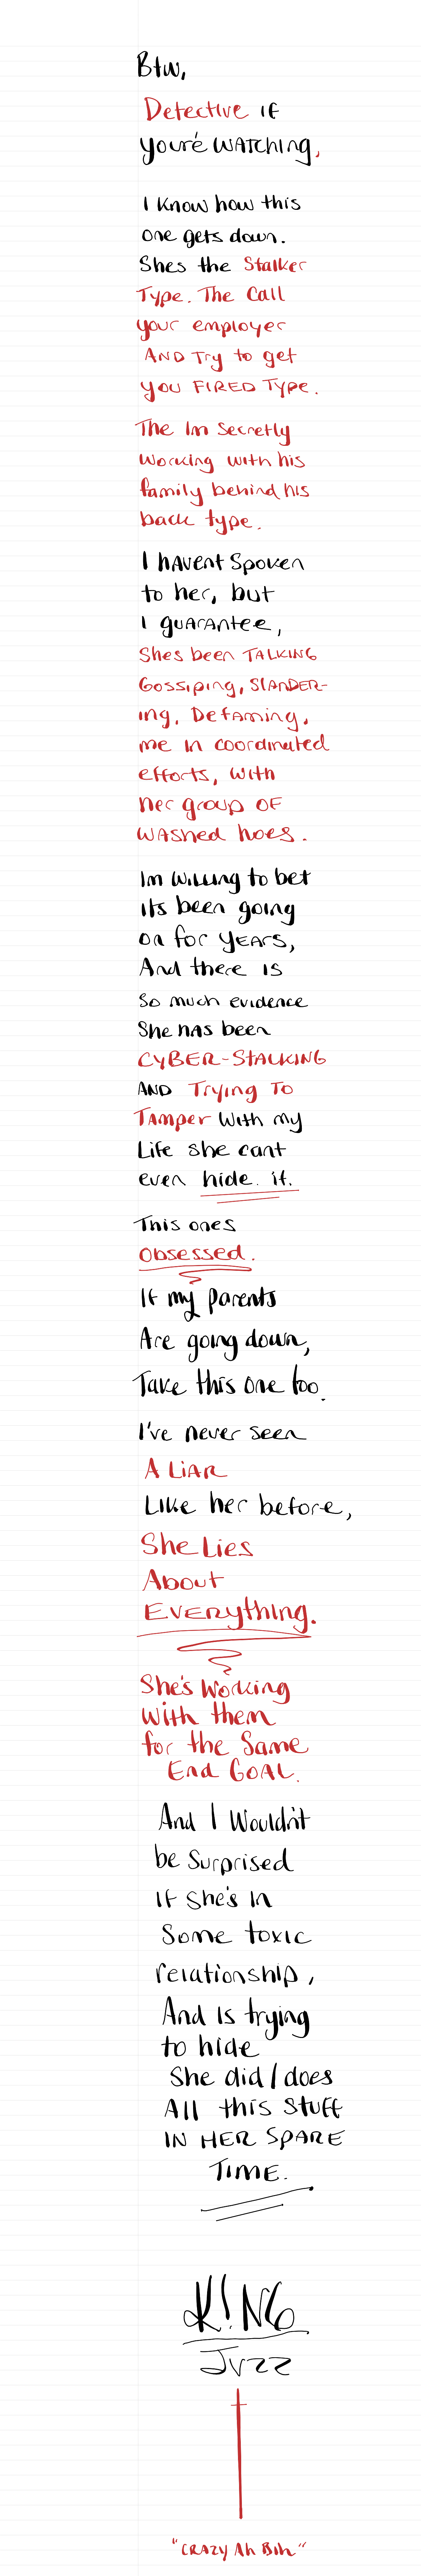 Btw,
Detective if
you're WATCHING.
I know how this
one gets down.
Shes the Stalker
Type. The Call
your employer
AND Try to get
you FIRED TYPE.
The Im Secretly
Working with his
family behind his
back type.
I havent Spoken
to her, but
I guarantee,
Shes been TALKING
Gossiping, SlANDER-
ing, Defaming,
me in coordinated
efforts, with
her group OF
WAShed hoes.
Im willing to bet
its been going
on for YEARS,
And there is
So much evidence
She has been
CYBER-STALKING
AND Trying To
Tamper with my
Life she cant
even hide it.
This ones
Obsessed.
If my parents
Are going down,
Take this one too.
I've never seen
A LiAR
Like her before,
She Lies
About
EVERything.
She's Working
With them
for the Same
End GOAL.
And I Wouldn't
be Surprised
If She's In
Some toxic
relationship,
And is trying
to hide
She did/does
All this Stuff
IN HER SPARE
TIME.
K!NG
JV22
"CRAZY Ah Bih"